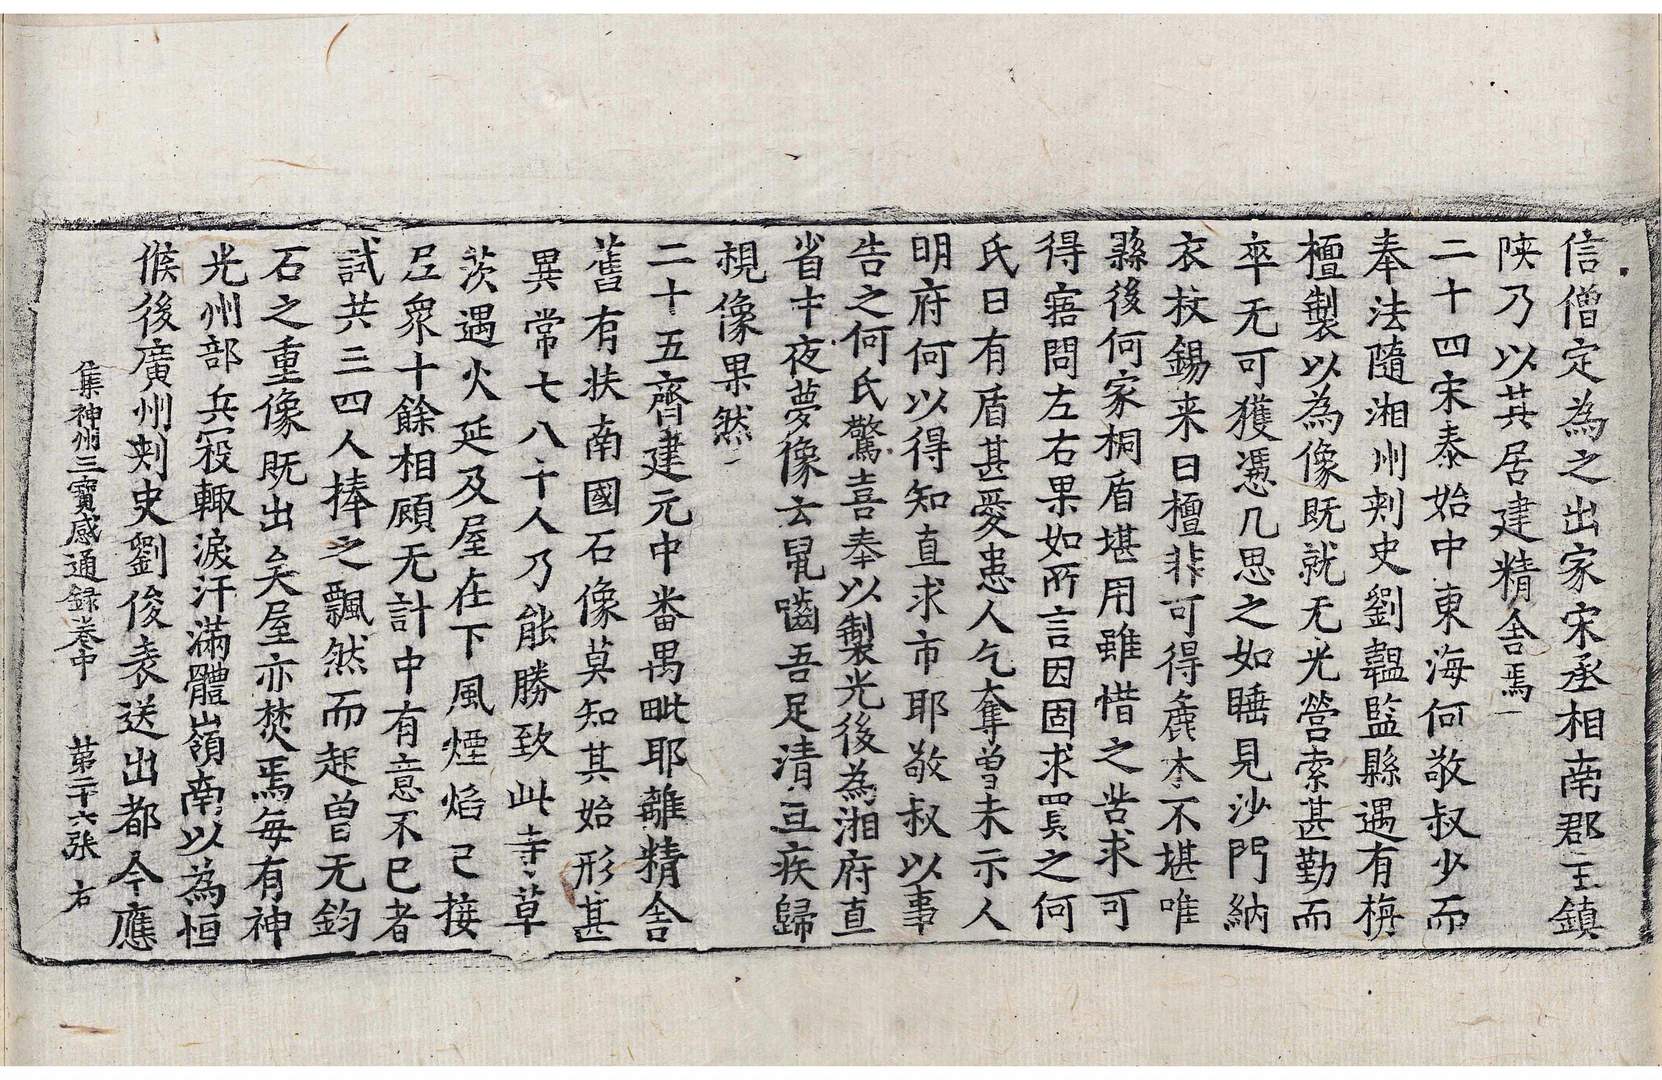 信僧定為之出家宋丞相南郡王鎮
陝乃以其居建精舍焉
二十四宋泰始中東海何敬叔少而
奉法隨湘州刾史劉韞監縣遇有栴
檀製以為像既就无光營索甚勤而
卒无可獲憑几思之如睡見沙門納
衣杖錫来曰檀非可得麁木不堪唯
縣後何家桐盾堪用雖惜之苦求可
得寤問左右果如所言因固求買之何
氏曰有盾甚愛患人乞奪曽未示人
明府何以得知直求市耶敬叔以事
告之何氏驚喜奉以製光後為湘府直
省中夜夢像云鼠嚙吾足清旦疾歸
視像果然
二十五齊建元中番禺毗耶離精舍
舊有扶南國石像莫知其始形甚
異常七八十人乃能勝致此寺草
茨遇火延及屋在下風煙焰已接
尼衆十餘相顧无計中有意不已者
試共三四人捧之飄然而起曽无鈞
石之重像既出矣屋亦焚焉每有神
光州部兵寇輙淚汗滿體嶺南以為恒
候後廣州刾史劉俊表送出都今應
集神州三寶感通録卷中 第二十六张 右